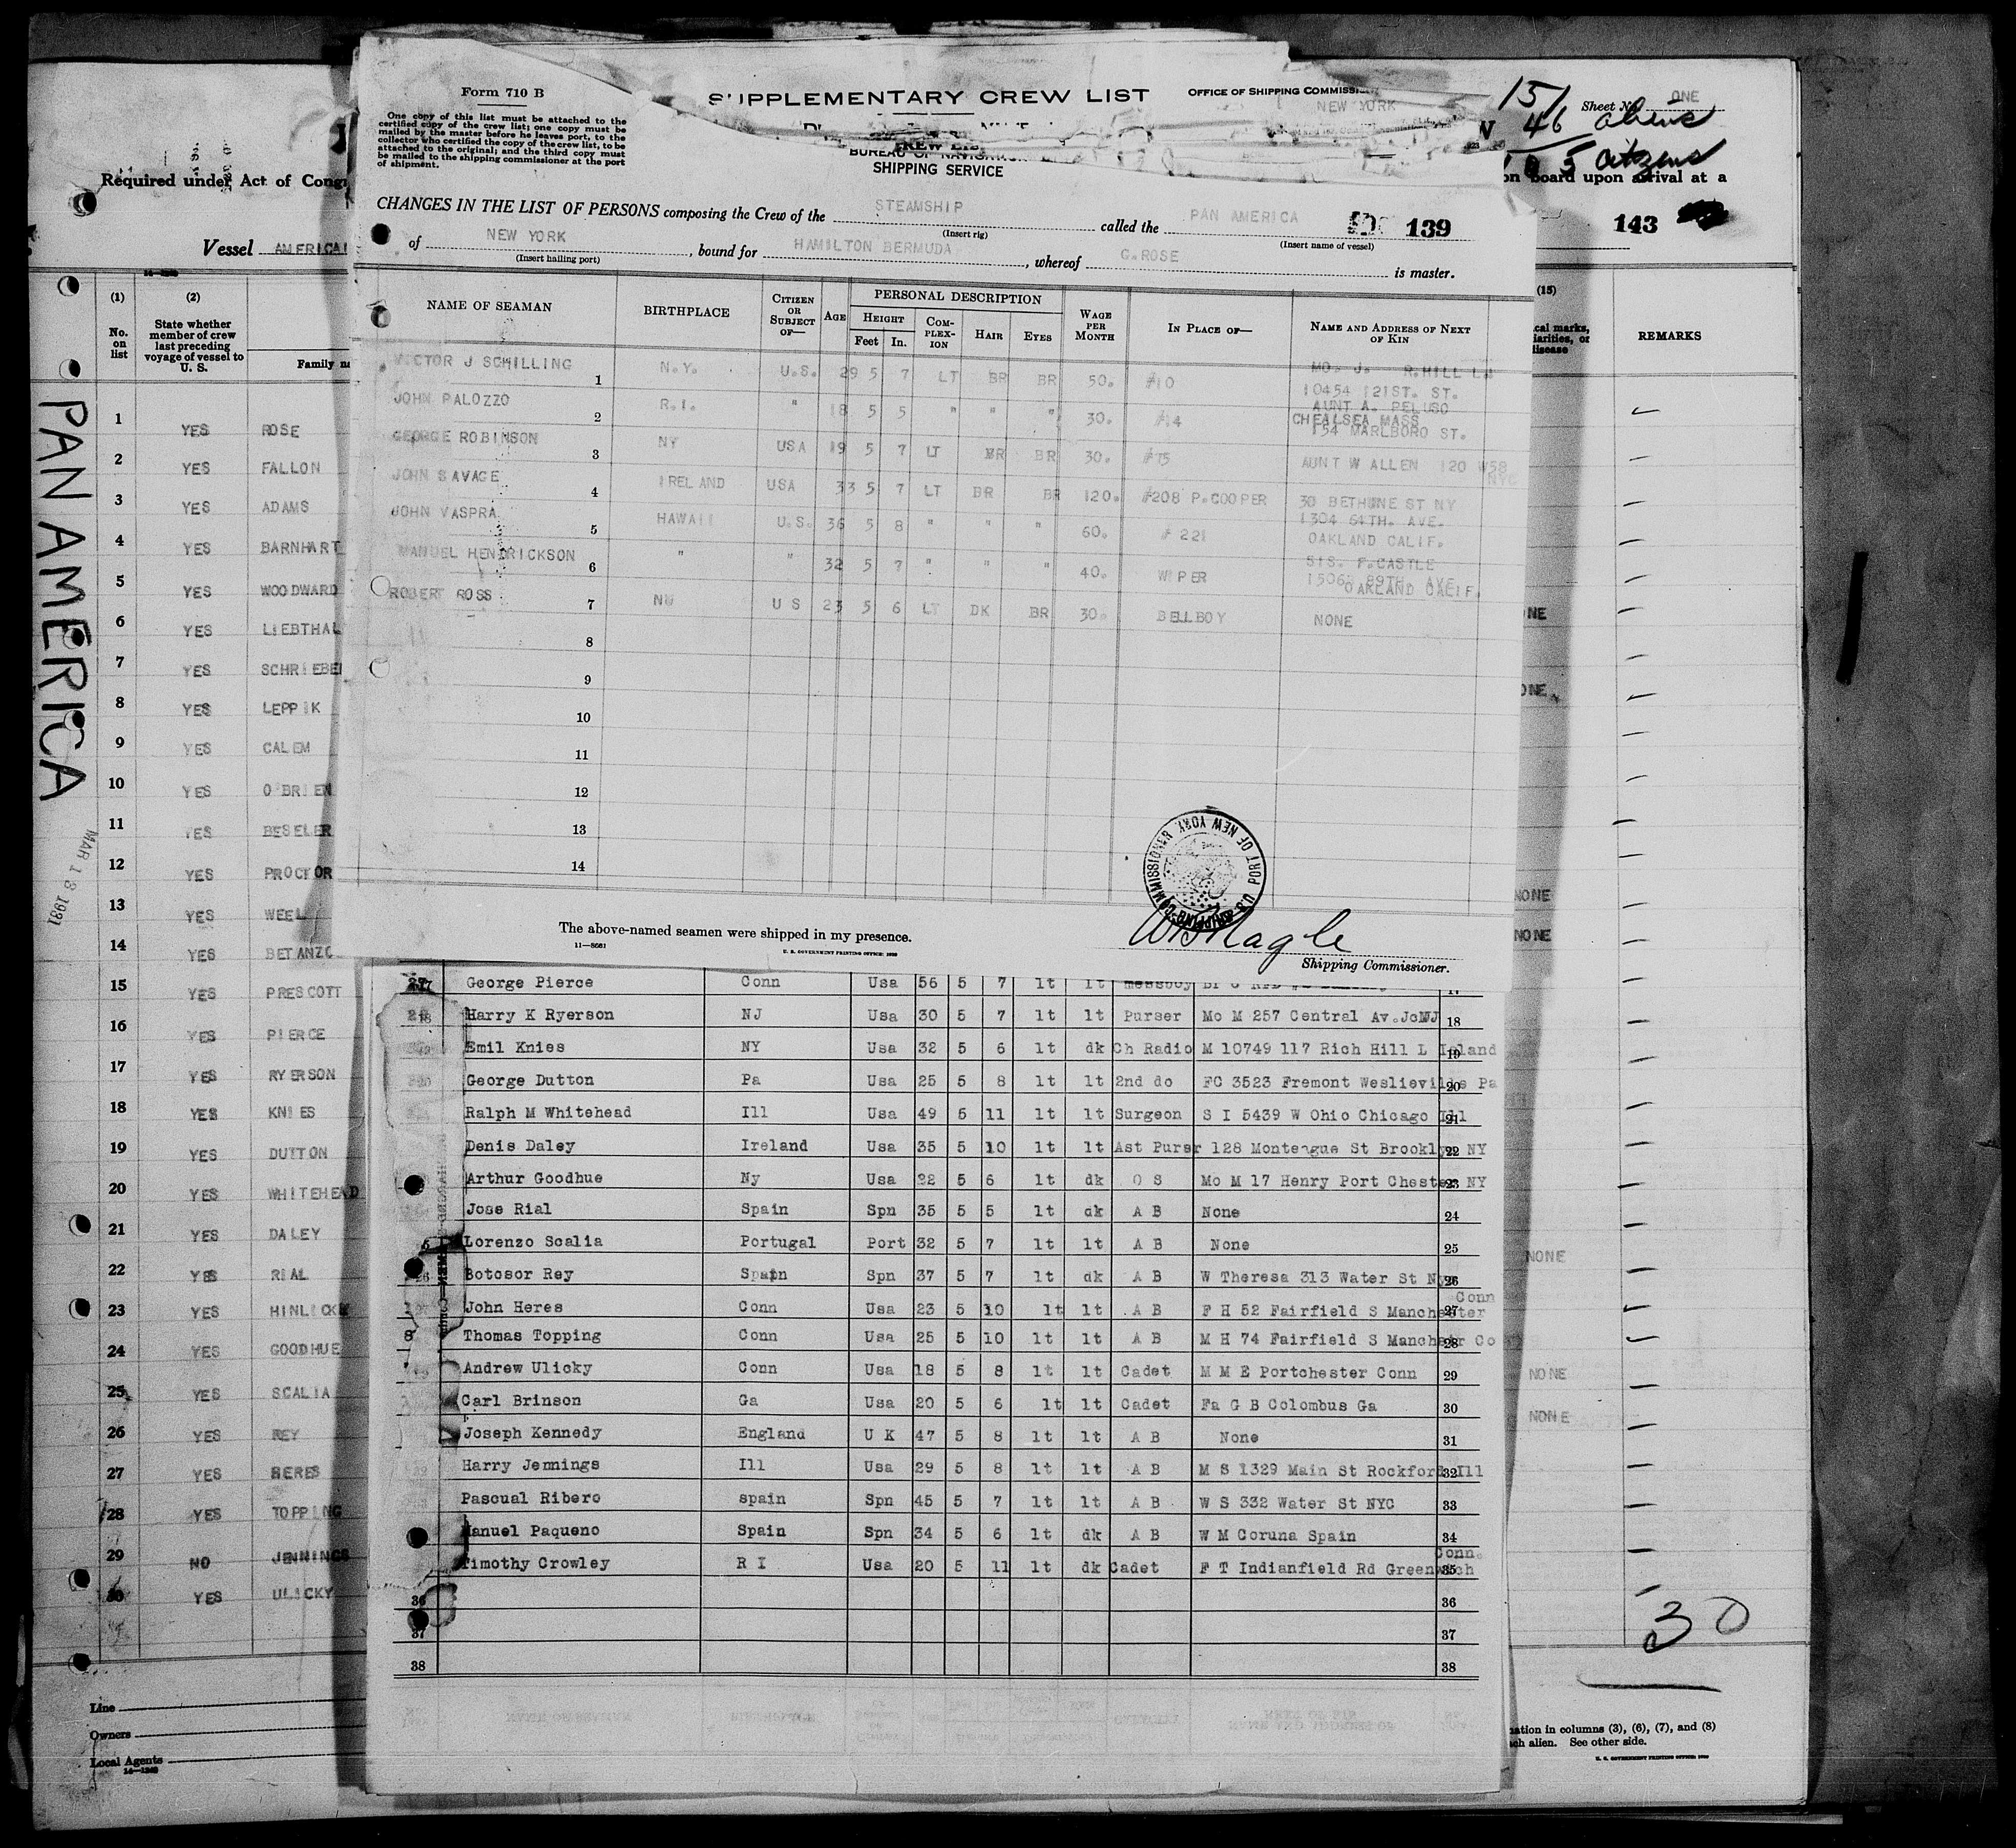 Form 710 B
One copy of this list must be attached to the
certified copy of the crew list; one copy must be
mailed by the master before he leaves port, to the
collector who certified the copy of the crew list, to be
attached to the original; and the third copy must
be mailed to the shipping commissioner at the port
of shipment.
SUPPLEMENTARY CREW LIST
OFFICE OF SHIPPING COMMISSIONER
NEW YORK
BUREAU OF NAVIGATION
SHIPPING SERVICE
CHANGES IN THE LIST OF PERSONS composing the Crew of the STEAMSHIP called the PAN AMERICA 139
(Insert rig) (Insert name of vessel)
of NEW YORK, bound for HAMILTON BERMUDA, whereof G.ROSE is master.
(Insert hailing port)
NAME OF SEAMAN BIRTHPLACE CITIZEN OR SUBJECT OF— AGE PERSONAL DESCRIPTION HEIGHT Feet In. COMPLEXION HAIR EYES WAGE PER MONTH IN PLACE OF— NAME AND ADDRESS OF NEXT OF KIN
VICTOR J SCHILLING 1 N.Y. U.S. 29 5 7 LT BR BR 50. #10 MO. J. R.HILL L.I
10454 121ST. ST.
JOHN PALOZZO 2 R.I. " 18 5 5 " " " 30. #14 AUNT A. PELUSO
CHEALSEA MASS
154 MARLBORO ST.
GEORGE ROBINSON 3 NY USA 19 5 7 LT BR BR 30. #75 AUNT W ALLEN 120 W58
NYC
JOHN SAVAGE 4 IRELAND USA 33 5 7 LT BR BR 120. #208 P.COOPER 30 BETHUNE ST NY
JOHN VASPRA 5 HAWAII U.S. 36 5 8 " " " 60. # 221 1304 64TH. AVE.
OAKLAND CALIF.
MANUEL HENDRICKSON 6 " " 32 5 7 " " " 40. WIPER SIS. F.CASTLE
89TH. AVE
OAKLAND CALIF.
ROBERT ROSS 7 US 23 5 6 LT DK BR 30. BELLBOY NONE
8
9
10
11
12
13
14
The above-named seamen were shipped in my presence.
11—8661
U. S. GOVERNMENT PRINTING OFFICE: 1930
U.S. SHIPPING COMMISSIONER PORT OF NEW YORK
W B Nagle
Shipping Commissioner.
George Pierce Conn Usa 56 5 7 lt lt messboy
Harry K Ryerson NJ Usa 30 5 7 lt lt Purser Mo M 257 Central Av.JcNJ 18
Emil Knies NY Usa 32 5 6 lt dk Ch Radio M 10749 117 Rich Hill L Island 19
George Dutton Pa Usa 25 5 8 lt lt 2nd do FC 3523 Fremont Weslieville Pa 20
Ralph M Whitehead Ill Usa 49 5 11 lt lt Surgeon S I 5439 W Ohio Chicago Ill 21
Denis Daley Ireland Usa 35 5 10 lt lt Ast Pursr 128 Monteague St Brooklyn NY 22
Arthur Goodhue Ny Usa 22 5 6 lt dk O S Mo M 17 Henry Port Chester NY 23
Jose Rial Spain Spn 35 5 5 lt dk A B None 24
Lorenzo Scalia Portugal Port 32 5 7 lt lt A B None 25
Botosor Rey Spain Spn 37 5 7 lt dk A B W Theresa 313 Water St Ny 26
John Heres Conn Usa 23 5 10 lt lt A B F H 52 Fairfield S Manchester Conn 27
Thomas Topping Conn Usa 25 5 10 lt lt A B M H 74 Fairfield S Manchestr Co 28
Andrew Ulicky Conn Usa 18 5 8 lt lt Cadet M M E Portchester Conn 29
Carl Brinson Ga Usa 20 5 6 lt lt Cadet Fa G B Colombus Ga 30
Joseph Kennedy England U K 47 5 8 lt lt A B None 31
Harry Jennings Ill Usa 29 5 8 lt lt A B M S 1329 Main St Rockford Ill 32
Pascual Ribero spain Spn 45 5 7 lt lt A B W S 332 Water St NYC 33
Manuel Paqueno Spain Spn 34 5 6 lt dk A B W M Coruna Spain 34
Timothy Crowley R I Usa 20 5 11 lt dk Cadet F T Indianfield Rd Greenwich Conn. 35
36 36
37 37
38 38
Required under Act of Congr
Vessel AMERICAN
PAN AMERICA
MAR 18 1931
(1) No. on list
(2) State whether member of crew last preceding voyage of vessel to U. S.
Family na
1 YES ROSE
2 YES FALLON
3 YES ADAMS
4 YES BARNHART
5 YES WOODWARD
6 YES LIEBTHAL
7 YES SCHRIEBER
8 YES LEPPIK
9 YES CALEM
10 YES O'BRIEN
11 YES BESELER
12 YES PROCTOR
13 YES WEEL
14 YES BETANZO
15 YES PRESCOTT
16 YES PIERCE
17 YES RYERSON
18 YES KNIES
19 YES DUTTON
20 YES WHITEHEAD
21 YES DALEY
22 YES RIAL
23 YES HINLICKY
24 YES GOODHUE
25 YES SCALIA
26 YES REY
27 YES HERES
28 YES TOPPING
29 NO JENNINGS
30 YES ULICKY
Line
Owners
Local Agents
14—1240
151
46 aliens
105 citizens
Sheet No. ONE
on board upon arrival at a
143
(15)
cal marks,
iarities, or
disease
REMARKS
NONE
NONE
NONE
NONE
NONE
NONE
NONE
30
nation in columns (3), (6), (7), and (8)
ch alien. See other side.
U. S. GOVERNMENT PRINTING OFFICE: 1930